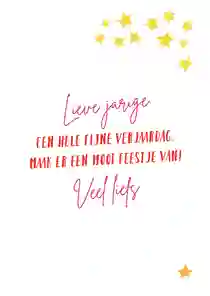 Lieve jarige,
EEN HELE FIJNE VERJAARDAG.
MAAK ER EEN MOOI FEESTJE VAN!
Veel liefs